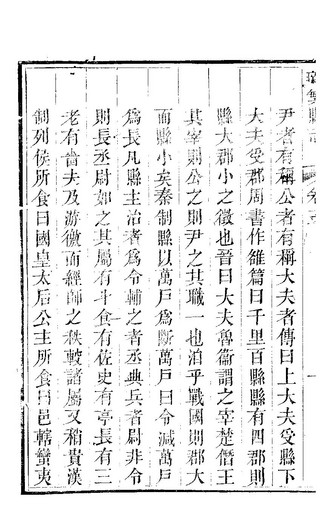 尹者有稱公者有稱大夫者傳曰上大夫受縣下
大夫受郡周書作雒篇曰千里百縣縣有四郡則
縣大郡小之徵也晉曰大夫魯衞謂之宰楚僭王
其宰則公之則尹之其職一也洎乎戰國則郡大
而縣小矣秦制縣以萬戶爲斷萬戶曰令減萬戶
爲長凡縣主治者爲令輔之者丞典兵者尉非令
則長丞尉如之其屬有斗食有佐史有亭長有三
老有嗇夫及游徼而經師之秩較諸屬又稍貴漢
制列侯所食曰國皇太后公主所食曰邑轄蠻夷